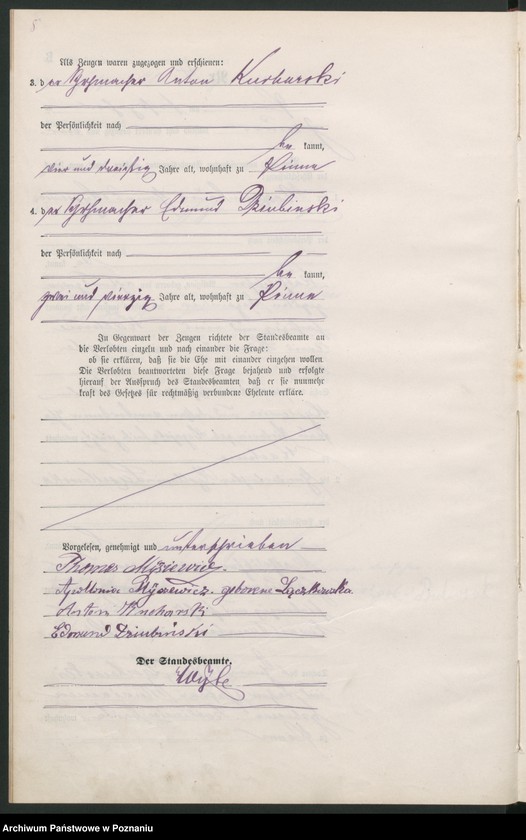 Als Zeugen waren zugezogen und erschienen:
3. der Uhrmacher Anton Kucharski
der Persönlichkeit nach
be kannt,
vier und dreißig Jahre alt, wohnhaft zu Pinne
4. der Uhrmacher Edmund Dziubinski
der Persönlichkeit nach
be kannt,
zwei und vierzig Jahre alt, wohnhaft zu Pinne
In Gegenwart der Zeugen richtete der Standesbeamte an
die Verlobten einzeln und nach einander die Frage:
ob sie erklären, daß sie die Ehe mit einander eingehen wollen.
Die Verlobten beantworteten diese Frage bejahend und erfolgte
hierauf der Ausspruch des Standesbeamten, daß er sie nunmehr
kraft des Gesetzes für rechtmäßig verbundene Eheleute erkläre.
Vorgelesen, genehmigt und unterschrieben
Thomas
Apollonia geborene Łączkowska
Anton Kucharski
Edmund Dziubiński
Der Standesbeamte.
Archiwum Państwowe w Poznaniu